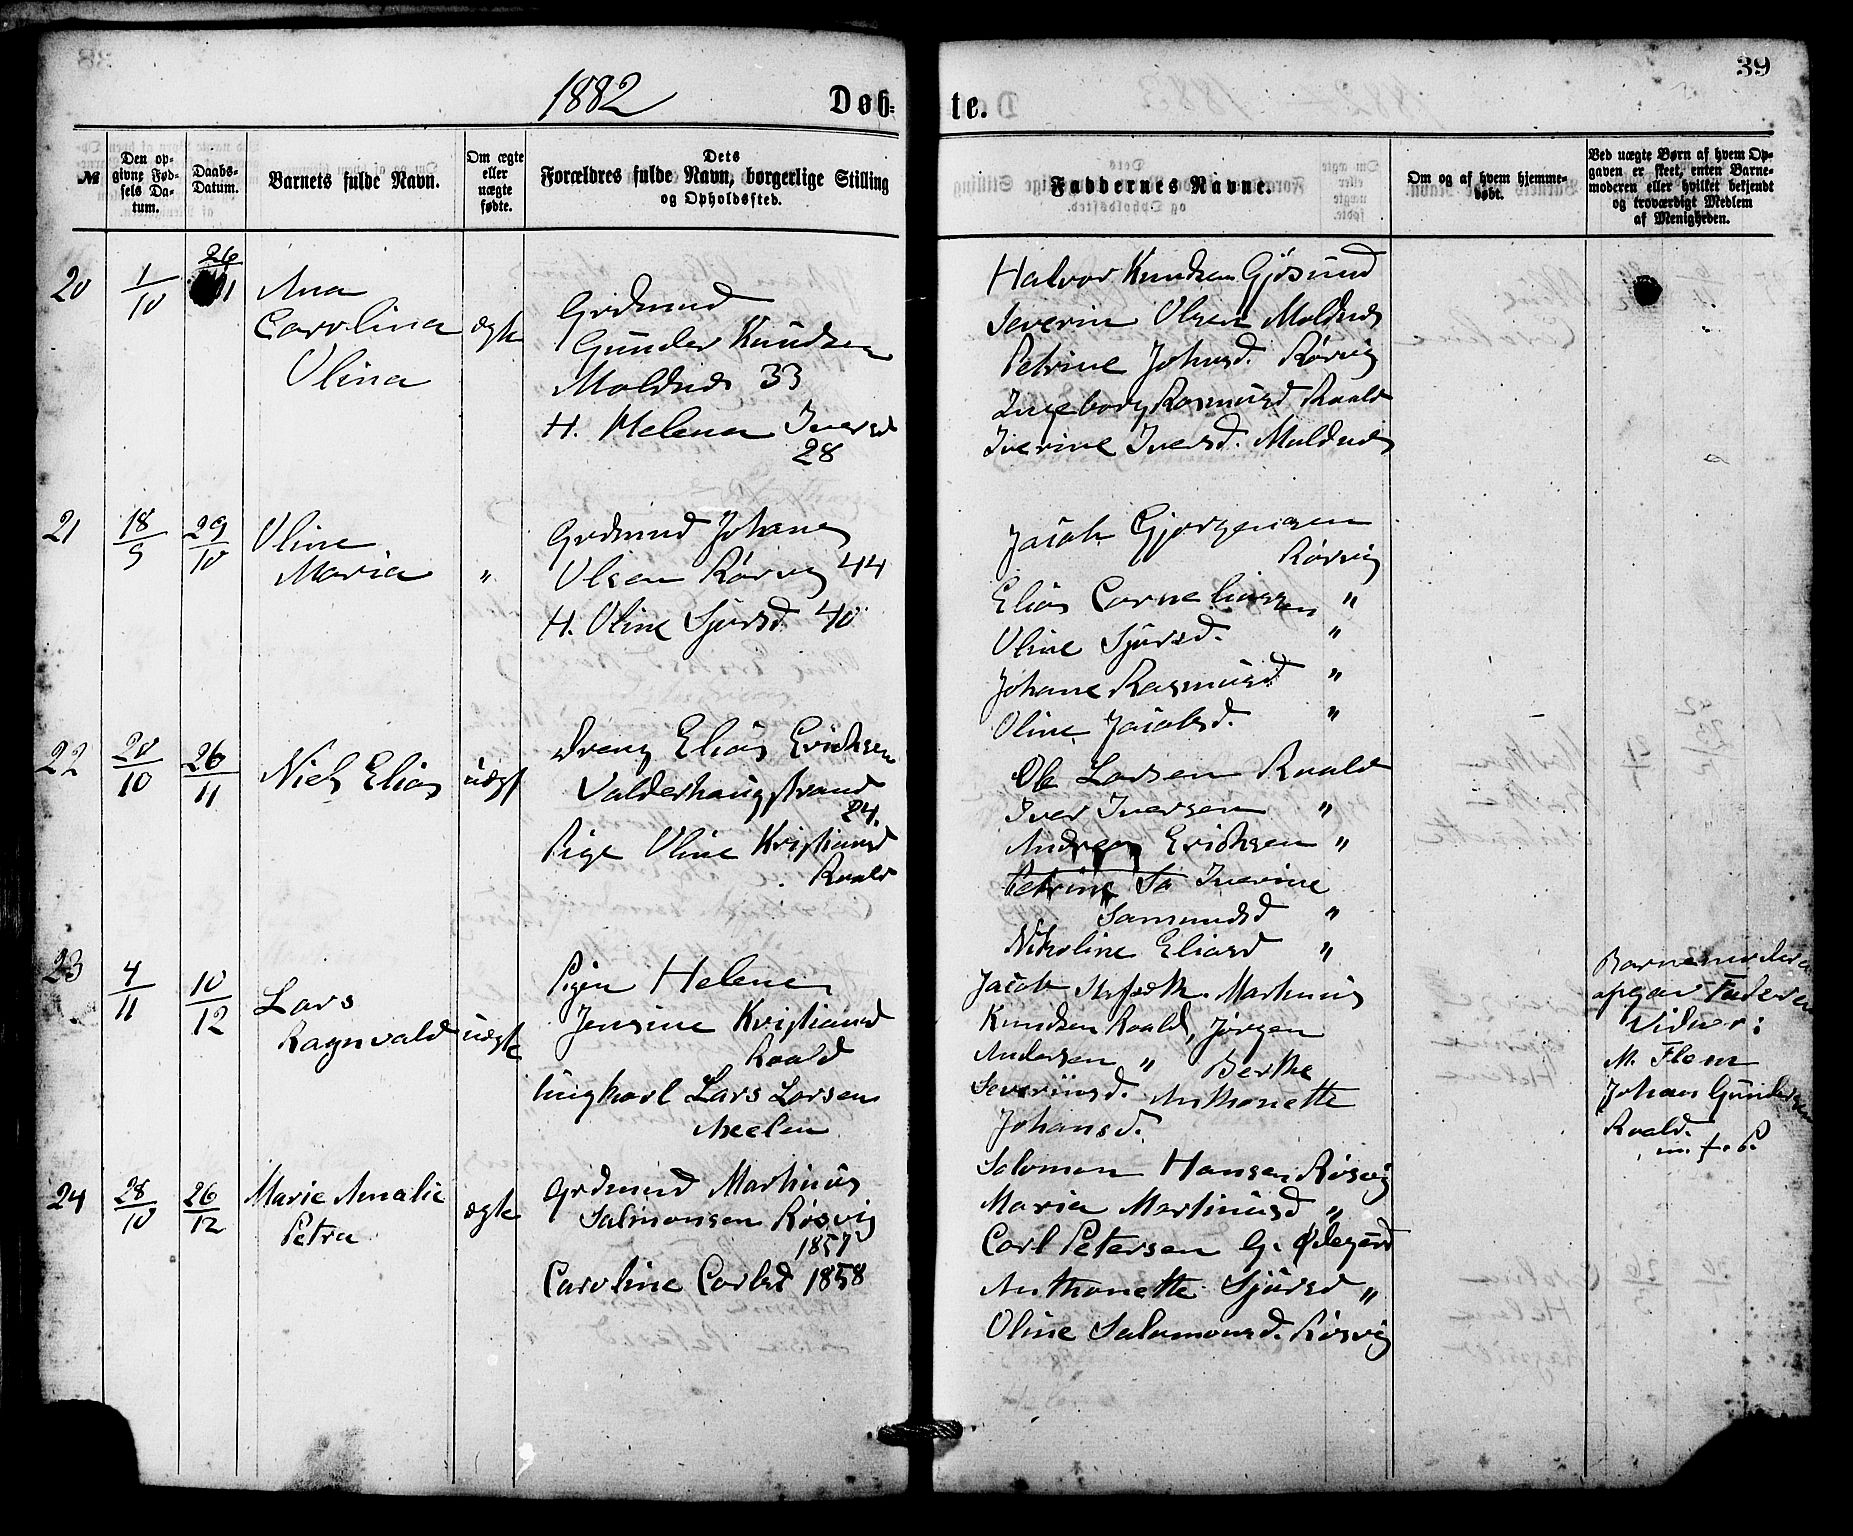 39
1882 Døb-te.
№
Den opgivne Fødsels Datum.
Daabs-Datum.
Barnets fulde Navn.
Om ægte eller uægte fødte.
Dets Forældres fulde Navn, borgerlige Stilling og Opholdssted.
Faddernes Navne.
Om og af hvem hjemmedøbt.
Ved uægte Børn af hvem Opgaven er skeet, enten Barnemoderen eller hvilket bekjendt og troværdigt Medlem af Menigheden.
20
1/10
26/11
Ana
Carolina
Olina
ægte
Grdmnd
Gunder Knudsen
Moldnes 33
H. Helena Iversd
28
Halvor Knudsen Gjøsund
Severin Olsen Moldnes
Petrine Johnsd. Rørvig
Ingeborg Rasmusd Roald
Iverine Iversd. Moldnes
21
18/9
29/10
Oline
Maria
"
Grdmnd Johanes
Olsen Rørvig 44
H. Oline Sjursd 40
Jacob Gjørgensen
Rørvig
Elias Corneliussen "
Oline Sjursd. "
Johane Rasmusd. "
Oline Jacobsd. "
22
20/10
26/11
Niels Elias
uægt
Dreng Elias Erichsen
Valderhaugstrand
24.
Pige Oline Kristiansd
Roald
Ole Larsen Roald
Iver Iversen "
Andreas Erichsen "
Petrine Iverine
Samundsd "
Nikoline Eliasd "
23
4/11
10/12
Lars
Ragnvald
uægte
Pigen Helene
Jensine Kristiansd
Roald
Ungkarl Lars Larsen
Alvelun
Jacob Martinus
Knudsen Roald, Jørgen
Andersen " Berthe
Severinsd. Anthonette
Johansd.
Barnemoderen
opgav Faderen
Vidner:
M. Flem
Johan Gundersen
Roald.
m. f. P.
24
28/10
26/12
Marie Amalie
Petra
ægte
Grdmnd Martinus
Salmonsen Røsvig
1857
Caroline Carlsd 1858
Salomon Hansen Røsvig
Maria Martinusd "
Carl Petersen G. Ødegård
Anthonette Sjursd "
Oline Salomonsd. Røsvig